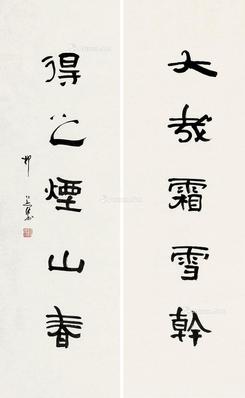 大哉霜雪幹
得之煙山春